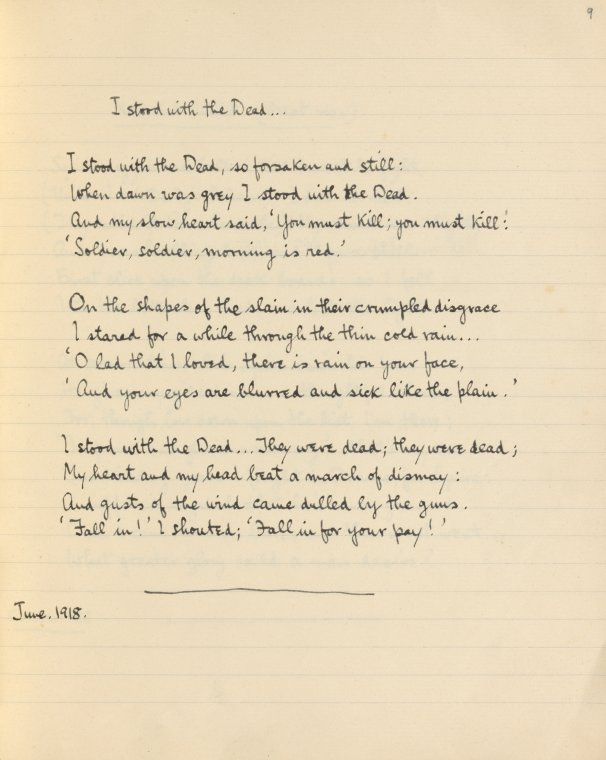 9
I stood with the Dead...
I stood with the Dead, so forsaken and still:
When dawn was grey I stood with the Dead.
And my slow heart said, 'You must kill; you must kill:'
'Soldier, soldier, morning is red.'
On the shapes of the slain in their crumpled disgrace
I stared for a while through the thin cold rain...
'O lad that I loved, there is rain on your face,
'And your eyes are blurred and sick like the plain.'
I stood with the Dead... They were dead; they were dead;
My heart and my head beat a march of dismay:
And gusts of the wind came dulled by the guns.
'Fall in!' I shouted; 'Fall in for your pay!'
June. 1918.